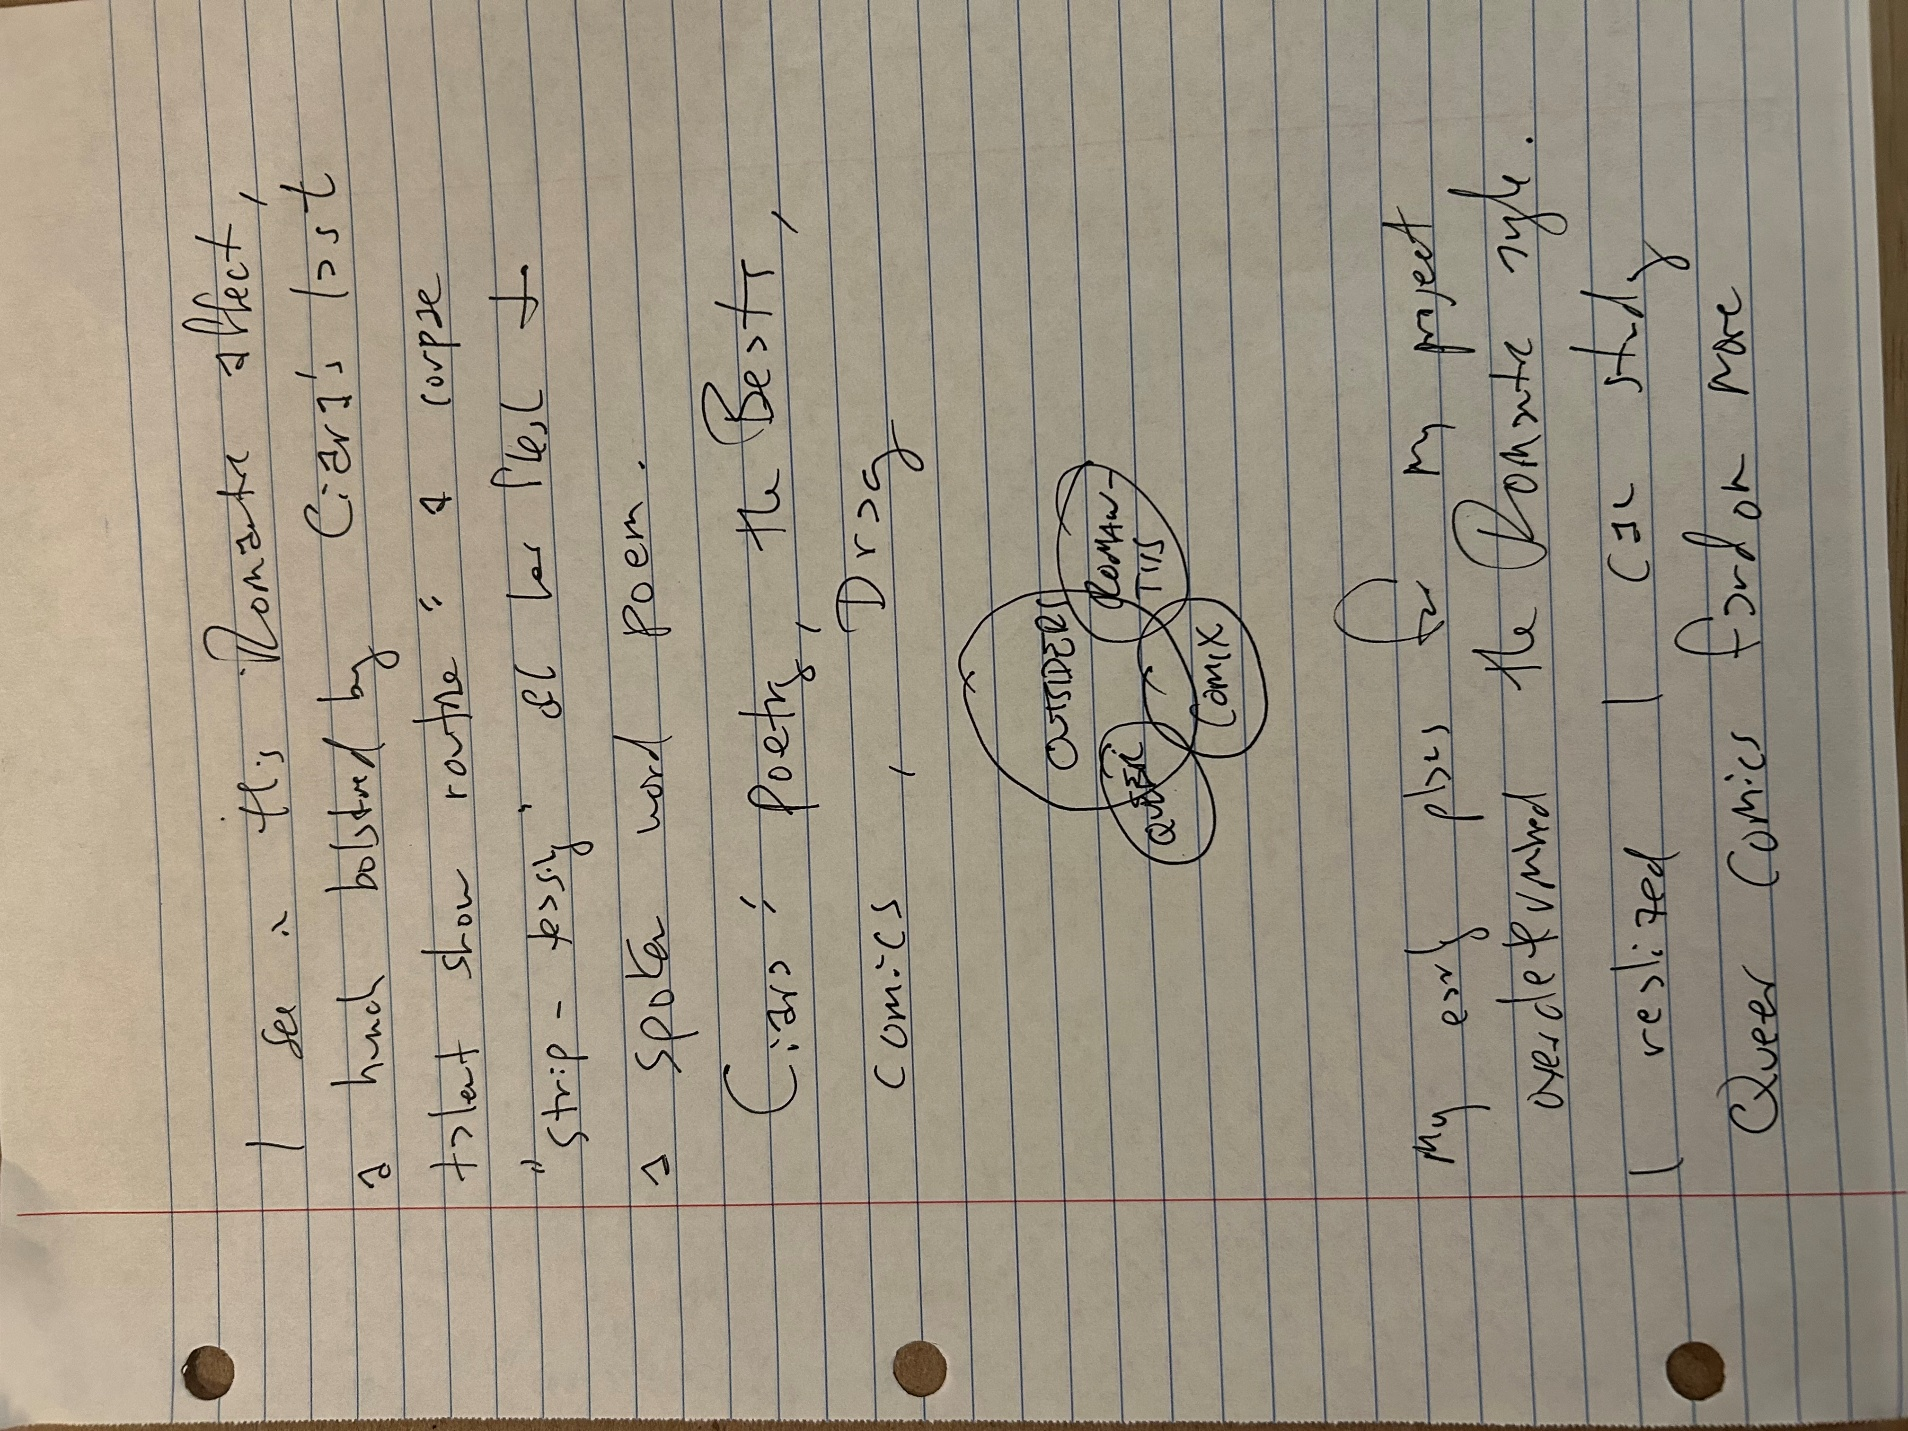 I see in this Romantic affect,
a hunch bolstered by Ciara's last
talent show routine: a corpse
"strip-teasing" of her flesh to
a spoken word poem.
Ciara: Poetry, the Beats,
Comics, Drag
OUTSIDERS
ROMAN-
TICS
QUEER
COMIX
My early plans for my project
overdetermined the Romantic style.
I realized I can study
Queer Comics fandom more